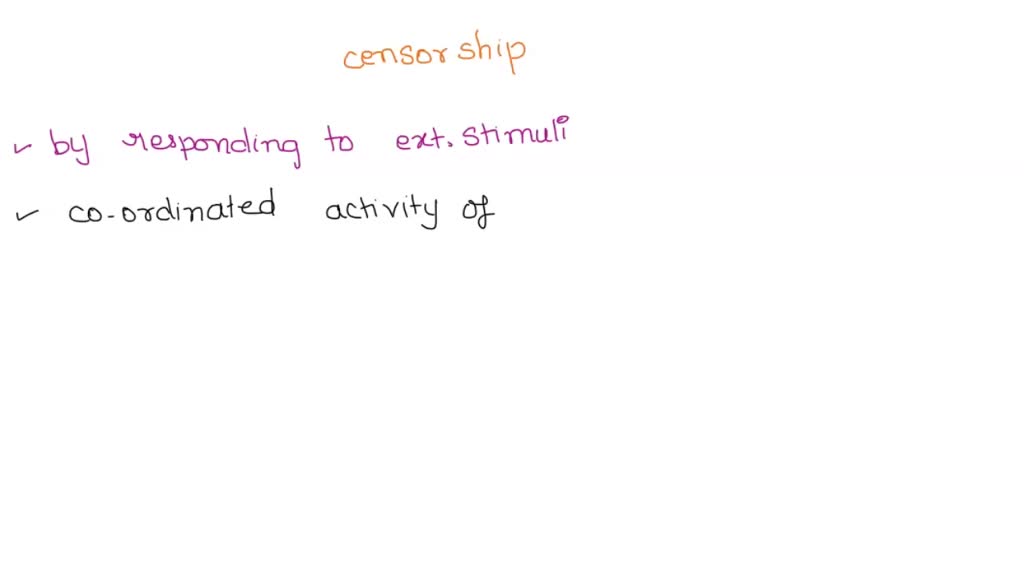 censorship
✓ by responding to ext. stimuli
✓ co-ordinated activity of